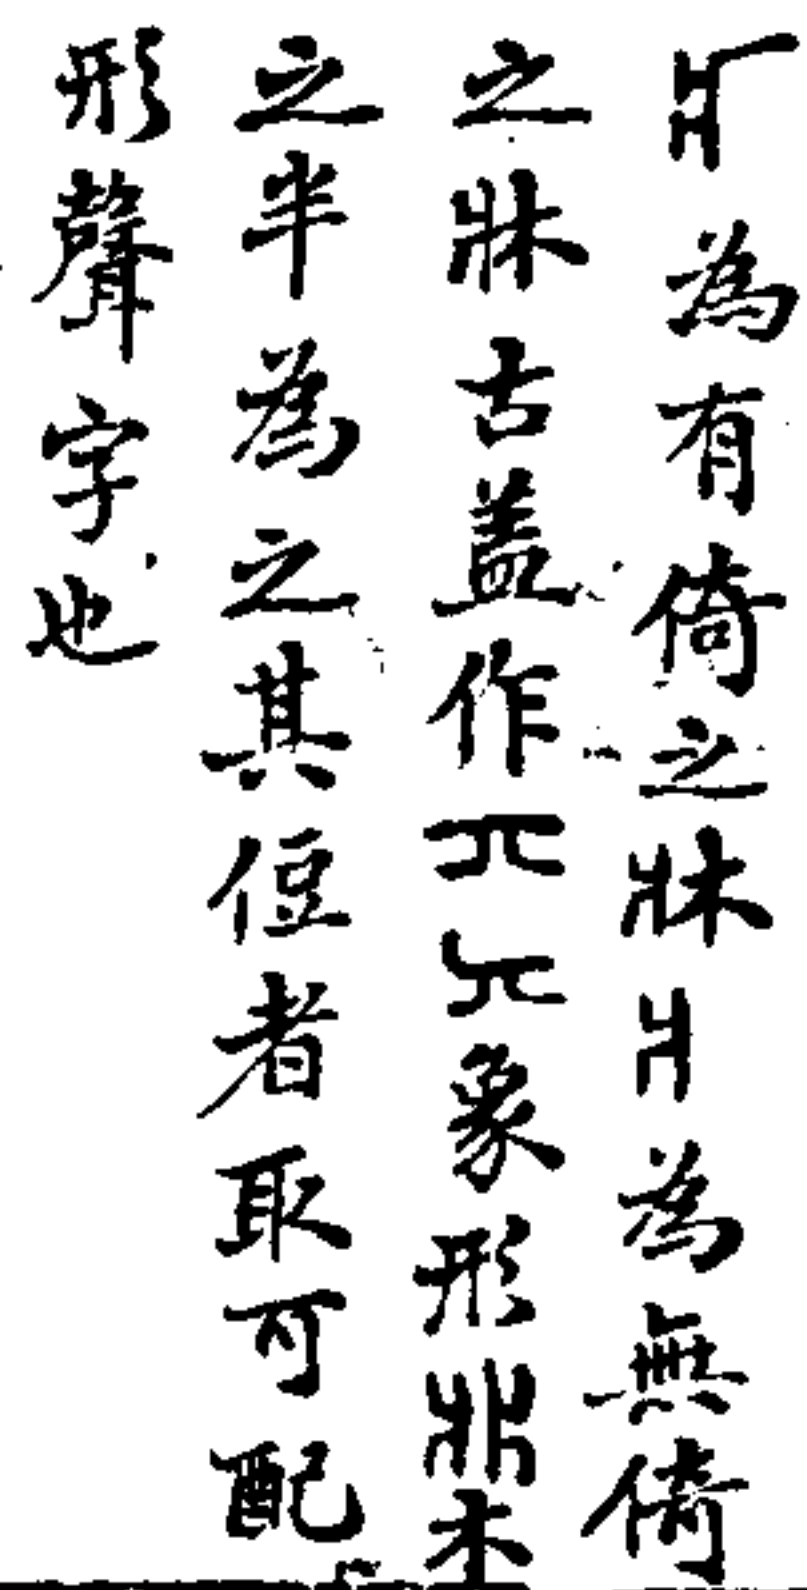 為有倚之牀爿為無倚
之牀古盖作象形木
之半為之其侸者取可配
形聲字也